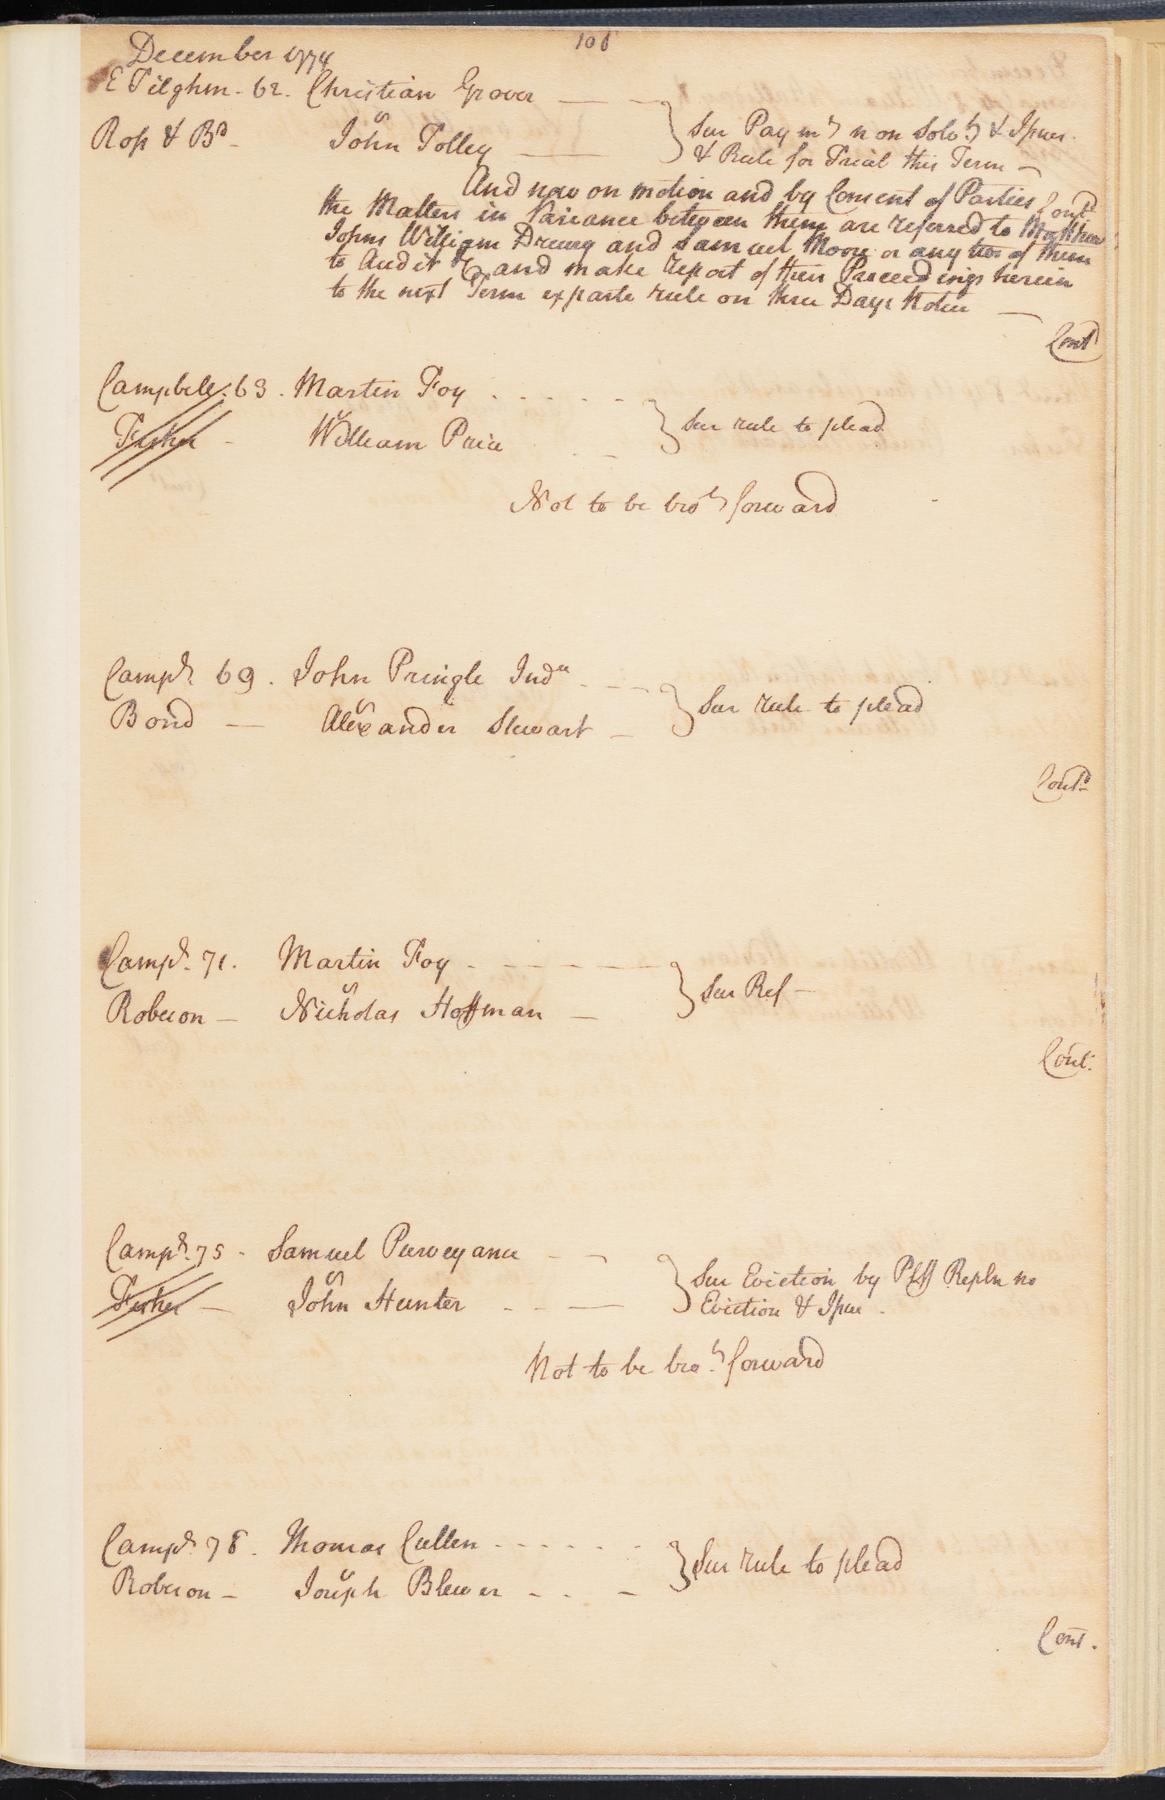 108
December 1774
E Tilghm. 62. Christian Grover
vs
Ross & Bd John Tolley
Sur Paymt non Solvt & Issues.
& Rule for Trial this Term
And now on motion and by Consent of Parties Contd
the Matters in Variance between them are referred to Matthew
Johns William Drewry and Samuel Moore or any two of them
to Audit &c and make report of their Proceedings herein
to the next Term exparte rule on three Days Notice
Contd
Campbell. 63. Martin Foy
vs
Fisher William Price
Sur rule to plead
Not to be brot forward
Campl. 69. John Pringle Inde
vs
Bond Alexander Stewart
Sur rule to plead
Contd
Campl. 71. Martin Foy
vs
Roberson Nicholas Hoffman
Sur Ref
Cont.
Campl. 75. Samuel Purveyance
vs
Fisher John Hunter
Sur Eviction by Plff Repln no
Eviction & Issue.
Not to be brot forward
Campl. 78. Thomas Cullen
vs
Roberson Joseph Blewer
Sur rule to plead
Cont.